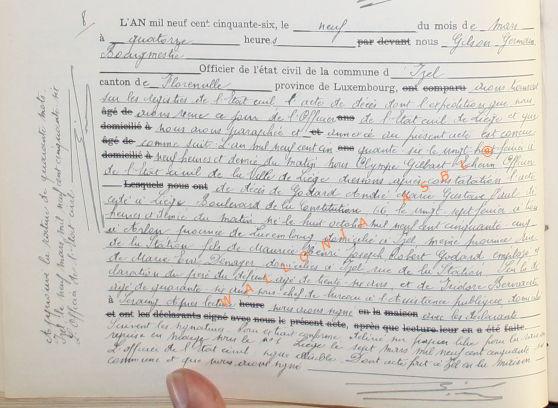 8.
L'AN mil neuf cent cinquante-six, le neuf du mois de Mars
à quatorze heures par devant nous Gilson Germain
Bourgmestre
Officier de l'état civil de la commune d'Izel
canton de Florenville province de Luxembourg, ont comparu avons transcrit
sur les registres de l'état civil, l'acte de décès dont l'expédition que nous
âgé de avons reçue ce jour de l'Officier ans de l'état civil de Liège et que
domicilié à nous avons paraphée et et annexée au présent acte est conçue
âgé de comme suit: L'an mil neuf cent cin ans quante six le vingt sept février à
domicilié à neuf heures et demie du matin Nous Olympe Gilbart Officier
de l'état civil de la Ville de Liège dressons après constatation l'acte
Lesquels nous ont de décès de Godard André Gustave Paul, dé
cédé à Liège Boulevard de la Constitution le vingt sept février à
heures et demie du matin né le huit octobre mil neuf cent cinquante
à Arlon province de Luxembourg domicilié à Izel même province rue
de la Station fils de Maurice Joseph Robert Godard employé et
de Marie domiciliés à Izel rue de la Station. Sur la dé
claration du père du défunt âgé de trente ans, et de
âgé de quarante ans sous chef de bureau à l'Assistance publique, domicilié
à Seraing Après lecture heure nous avons signé en la maison avec les déclarants
et ont les déclarants signé avec nous le présent acte, après que lecture leur en a été faite.
Suivent les signatures. Pour extrait conforme. Délivré sur papier libre pour
Liège le sept mars mil neuf cent cinquante six
L'Officier de l'état civil, signé illisible. Dont acte fait à Izel en la maison
commune et que nous avons signé
Approuvé la rature de quarante mots.
Izel le neuf mars mil neuf cent cinquante six
L'Officier de l'état civil
© ASBL WALLONIA